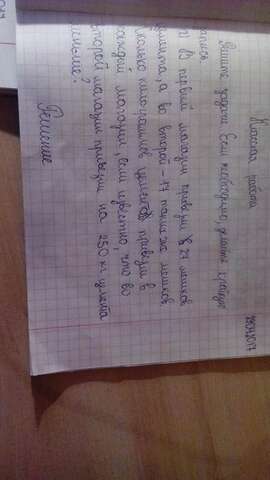 28042017
Классная работа
Решите задачи. Если необходимо, делайте краткую
запись
2) В первый магазин привезли 21 мешков
цемента, а во второй – 17 таких же мешков
сколько килограммов цемента привезли в
каждый магазин, если известно, что во
второй магазин привезли на 250 кг цемента
меньше?
Решение